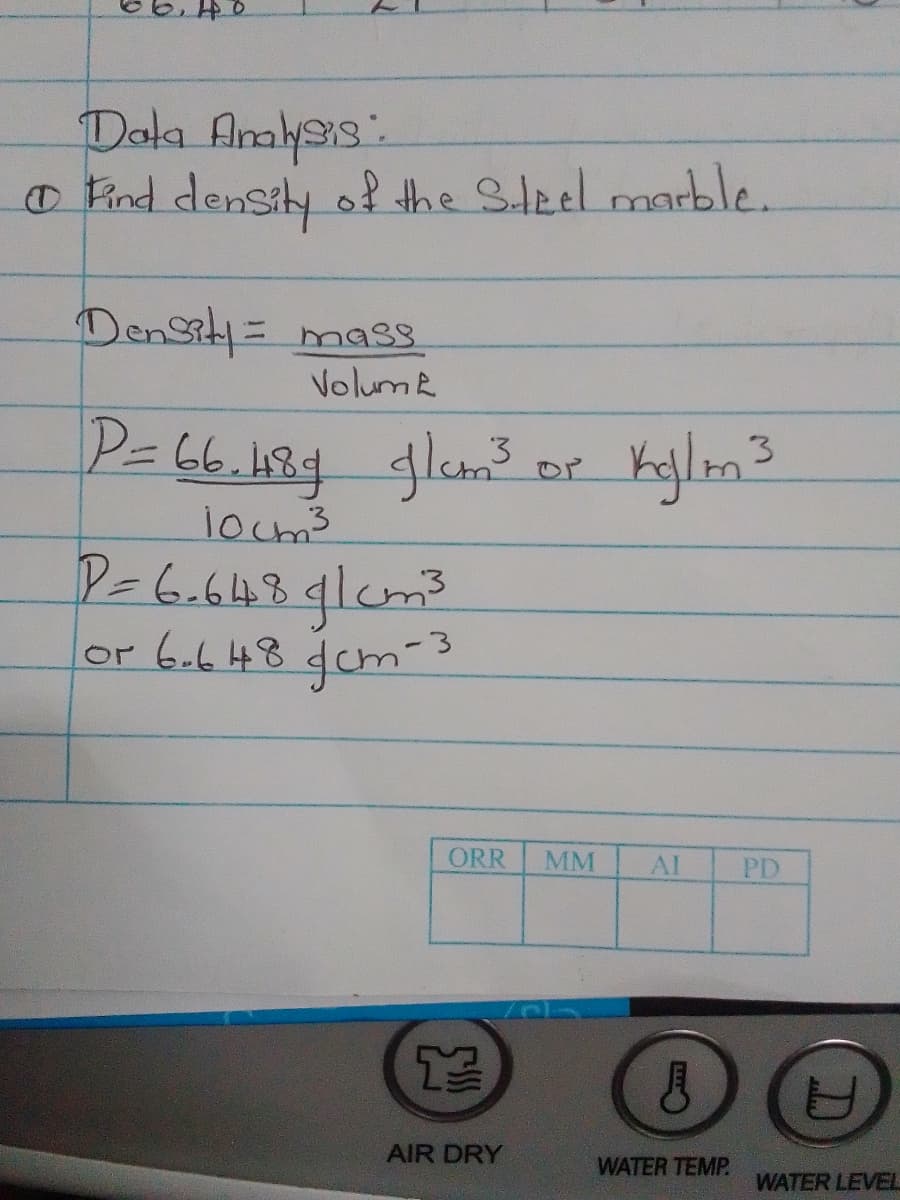 66.48
Data Analysis:
① Find density of the Steel marble.
Density = mass
Volume
P = 66.48g g/cm³ or kg/m³
10cm³
P = 6.648 g/cm³
or 6.648 gcm-³
ORR MM AI PD
AIR DRY
WATER TEMP.
WATER LEVEL